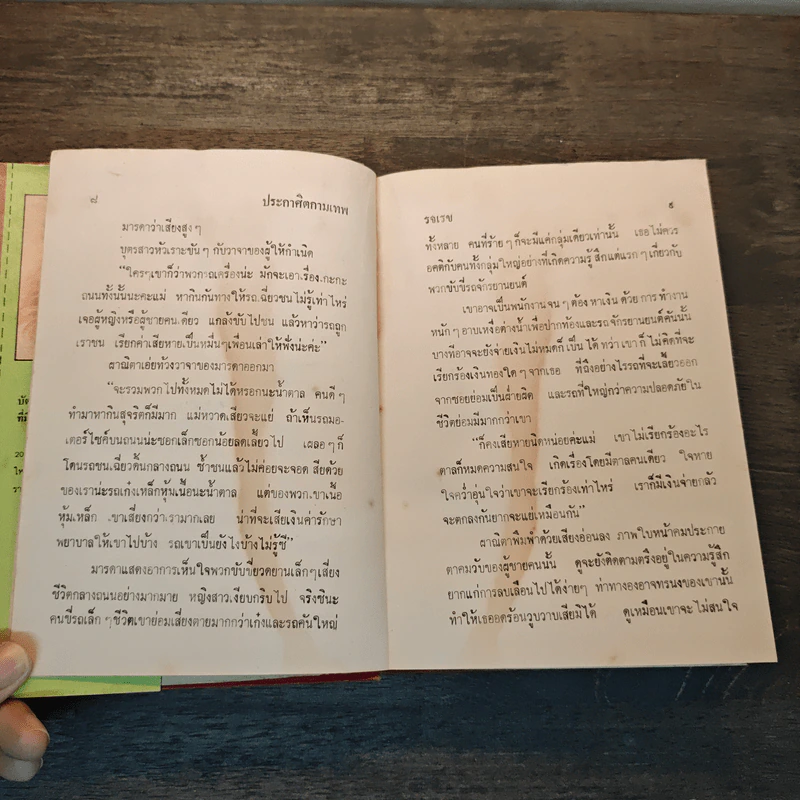 ๘
ประกาศิตกามเทพ
มารดาว่าเสียงสูงๆ
บุตรสาวหัวเราะขันๆ กับวาจาของผู้ให้กำเนิด
"ใครๆเขาก็ว่าพวกรถเครื่องน่ะ มักจะเอาเรื่องเกะกะ
ถนนทั้งนั้นนะคะแม่ หากินกันทางให้รถเฉี่ยวชนไม่รู้เท่าไหร่
เจอผู้หญิงหรือผู้ชายคนเดียว แกล้งขับไปชน แล้วหาว่ารถถูก
เราชน เรียกค่าเสียหายเป็นหมื่นๆเพื่อนเล่าให้ฟังน่ะค่ะ"
ผาณิตาเอ่ยท้วงวาจาของมารดาออกมา
"จะรวมพวกไปทั้งหมดไม่ได้หรอกนะน้ำตาล คนดีๆ
ทำมาหากินสุจริตก็มีมาก แม่หวาดเสียวจะแย่ ถ้าเห็นรถมอ-
เตอร์ไซค์บนถนนน่ะซอกเล็กซอกน้อยลดเลี้ยวไป เผลอๆก็
โดนรถชนเฉี่ยวดั้นกลางถนน ซ้ำชนแล้วไม่ค่อยจะจอด สียด้วย
ของเราน่ะรถเก๋งเหล็กหุ้มเนื้อนะน้ำตาล แต่ของพวกเขาเนื้อ
หุ้มเหล็ก เขาเสี่ยงกว่าเรามากเลย น่าที่จะเสียเงินค่ารักษา
พยาบาลให้เขาไปบ้าง รถเขาเป็นยังไงบ้างไม่รู้ซี"
มารดาแสดงอาการเห็นใจพวกขับขี่ยวดยานเล็กๆเสี่ยง
ชีวิตกลางถนนอย่างมากมาย หญิงสาวเงียบกริบไป จริงซินะ
คนขี่รถเล็กๆชีวิตเขาย่อมเสี่ยงตายมากกว่าเก๋งและรถคันใหญ่
รจเรข
๙
ทั้งหลาย คนที่ร้ายๆก็จะมีแค่กลุ่มเดียวเท่านั้น เธอไม่ควร
อคติกับคนทั้งกลุ่มใหญ่อย่างที่เกิดความรู้สึกแต่แรกๆเกี่ยวกับ
พวกขับขี่รถจักรยานยนต์
เขาอาจเป็นพนักงานจนๆต้องหาเงินด้วยการทำงาน
หนักๆอาบเหงื่อต่างน้ำเพื่อปากท้องและรถจักรยานยนต์คันนั้น
บางทีอาจจะยังจ่ายเงินไม่หมดก็เป็นได้ ทว่าเขาก็ไม่คิดที่จะ
เรียกร้องเงินทองใดๆจากเธอ ที่ถึงอย่างไรรถที่จะเลี้ยวออก
จากซอยย่อมเป็นฝ่ายผิด และรถที่ใหญ่กว่าความปลอดภัยใน
ชีวิตย่อมมีมากกว่าเขา
"ก็คงเสียหายนิดหน่อยค่ะแม่ เขาไม่เรียกร้องอะไร
ตาลก็หมดความสนใจ เกิดเรื่องโดยมีตาลคนเดียว ใจหาย
ใจคว่ำอุ่นใจว่าเขาจะเรียกร้องเท่าไหร่ เราก็มีเงินจ่ายกลัว
จะตกลงกันยากจะแย่เหมือนกัน"
ผาณิตาพึมพำด้วยเสียงอ่อนลง ภาพใบหน้าคมประกาย
ตาคมวับของผู้ชายคนนั้น ดูจะยังติดตามตรึงอยู่ในความรู้สึก
ยากแก่การลบเลือนไปได้ง่ายๆ ท่าทางองอาจทรนงของเขานั้น
ทำให้เธออดร้อนวูบวาบเสียมิได้ ดูเหมือนเขาจะไม่สนใจ